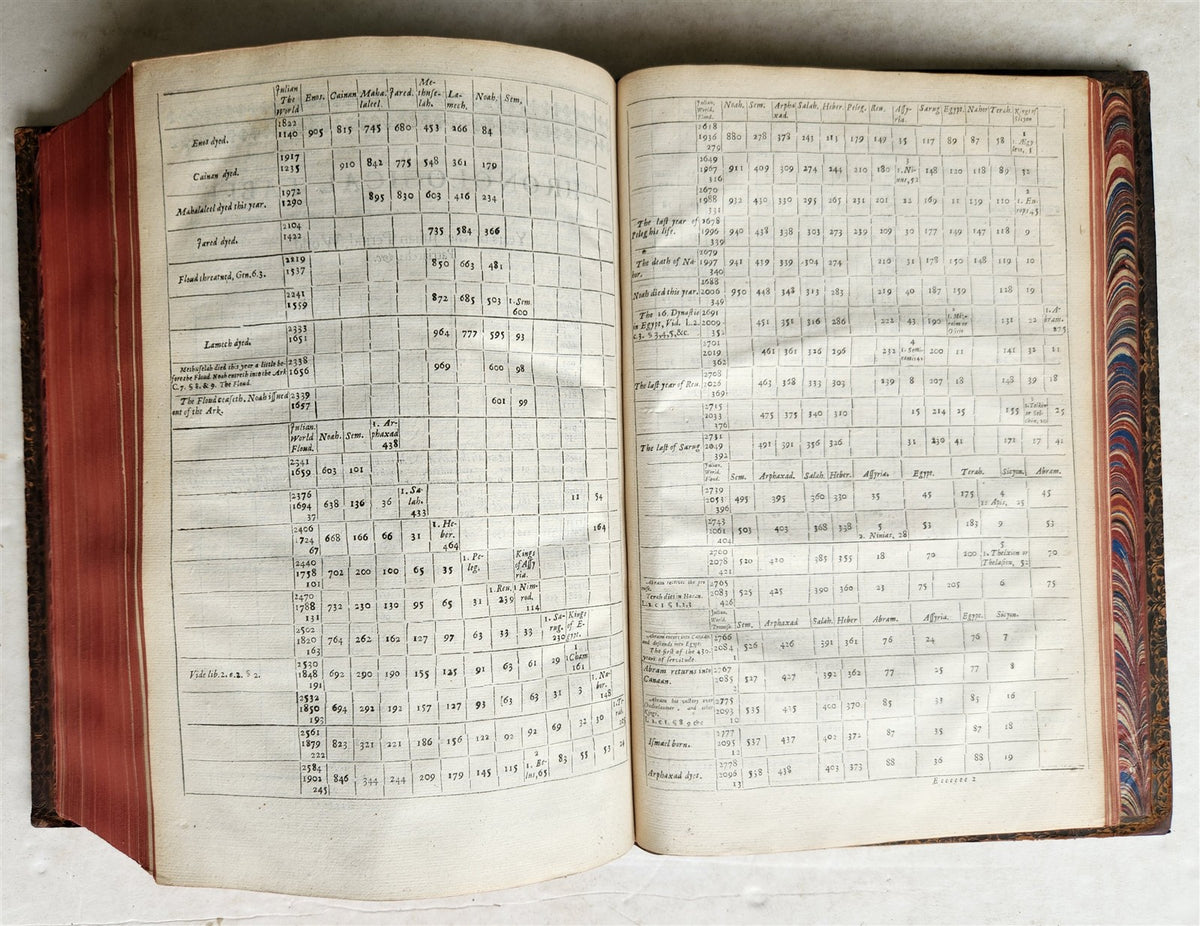 Julian The World Enos. Cainan Mahalaleel. Jared. Methuselah. Lamech. Noah. Sem.
1822
Enos dyed. 1140 905 815 745 680 453 266 84
1917
Cainan dyed. 1235 910 842 775 548 361 179
1972
Mahalaleel dyed this year. 1290 895 830 603 416 234
2104
Jared dyed. 1422 735 584 366
2219
Floud threatned, Gen.6.3. 1537 850 663 481
2241
1559 872 685 503 1. Sem. 600
2333
Lamech dyed. 1651 964 777 595 93
Methuselah died this year a little before the Floud. Noah entreth into the Ark 2338
C. 7. § 2. & 9. The Floud. 1656 969 600 98
The Floud ceaseth. Noah issued 2339
out of the Ark. 1657 601 99
Julian. World Floud. Noah. Sem. 1. Arphaxad 438
2341
1659 603 101
2376
1694 638 136 36 1. Salah. 433 11 54
37
2406
1724 668 166 66 31 1. Heber. 464 164
67
2440
1758 702 200 100 65 35 1. Peleg. Kings of Assyria.
101
2470
1788 732 230 130 95 65 31 1. Reu. 239 1. Nimrod. 114
131
2502
1820 764 262 162 127 97 63 33 33 1. Sarug. 230 Kings of Egypt.
163
2530
Vide lib. 2. c. 2. § 2. 1848 692 290 190 155 125 91 63 61 29 1 Cham 161
191
2532
1850 694 292 192 157 127 93 63 63 31 3 1. Nahor. 148
193
2561
1879 823 321 221 186 156 122 92 92 69 32 30
222
2584
1902 846 344 244 209 179 145 115 2 1. Belus, 65 83 55 53 24
245
Julian, World, Floud. Noah. Sem. Arphaxad Salah. Heber. Peleg. Reu. Assyria. Sarug Egypt. Nahor Terah. Kings of Sicyon
2618
1936 880 278 378 243 213 179 149 35 117 89 87 58
279
2649
1967 911 409 309 274 244 210 180 3 1. Ninus, 52 148 120 118 89 32
316
2670
1988 932 430 330 295 265 231 201 22 169 11 139 110
331
The last year of 2678
Peleg his life. 1996 940 438 338 303 273 239 109 30 177 149 147 118 9
339
2679
The death of Nahor. 1997 941 439 339 304 274 210 31 178 150 148 119 10
340
2688
Noah died this year. 2006 950 448 348 313 283 219 40 187 159 128 19
349
The 16. Dynastie 2691
in Egypt, Vid. L. 2. 2009 451 351 316 286 222 43 190 131 22 1. Abram. 175
c. 3. § 3,4,5, &c. 352
2701
2019 461 361 326 296 232 4 200 11 141 32 11
362
2708
The last year of Reu. 2026 463 368 333 303 239 8 207 18 148 39 18
369
2715
2033 475 375 340 310 15 214 25 155 25
376
2731
The last of Sarug 2049 491 391 356 326 31 230 41 171 17 41
392
Julian. World. Floud. Sem. Arphaxad. Salah. Heber. Assyria. Egypt. Terah. Sicyon. Abram.
2739
2053 495 395 360 330 35 45 175 4 1. Apis, 25 45
396
2743
2061 503 403 368 338 5 2. Ninias, 28 53 183 9 53
404
2760
2078 520 420 385 355 18 70 200 5 1. Thelxion or Thelasien, 52 70
421
2765
2083 525 425 390 360 23 75 205 6 75
Terah dies in Haran. 426
Julian. World. Sem. Arphaxad Salah. Heber Abram. Assyria. Egypt. Sicyon.
Abram enters into Canaan 2766
and descends into Egypt. 2084 526 426 391 361 76 24 76 7
The first of the 430. years of servitude. 1
Abram returns into 2767
Canaan. 2085 527 427 392 362 77 25 77 8
2
2775
2093 535 435 400 370 85 33 85 16
10
2777
Ismael born. 2095 537 437 402 372 87 35 87 18
12
2778
Arphaxad dyes. 2096 538 438 403 373 88 36 88 19
13
Eeeeeee 2